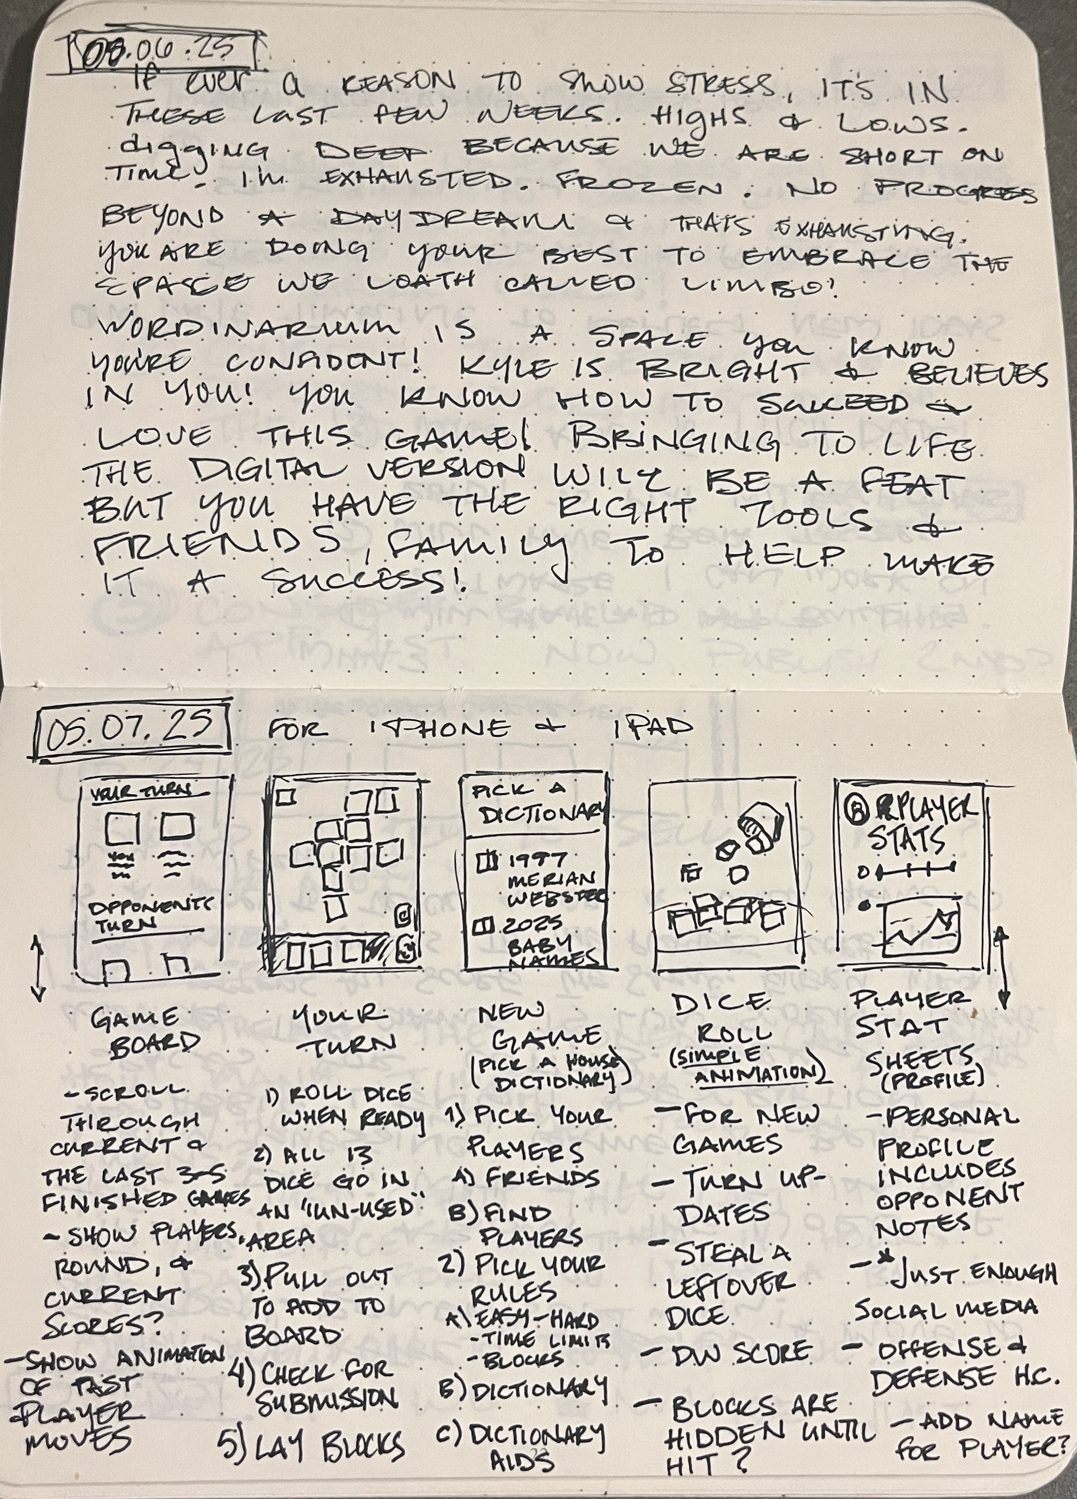 05.06.25
If ever a REASON TO SHOW STRESS, IT'S IN
THESE LAST FEW WEEKS. HIGHS & LOWS.
digging DEEP BECAUSE WE ARE SHORT ON
TIME! I'M EXHAUSTED. FROZEN. NO PROGRESS
BEYOND A DAYDREAM & THATS EXHAUSTING.
YOU ARE DOING YOUR BEST TO EMBRACE THE
SPACE WE LOATH CALLED LIMBO!
WORDINARIUM IS A SPACE YOU KNOW
YOU'RE CONFIDENT! KYLE IS BRIGHT & BELIEVES
IN YOU! YOU KNOW HOW TO SUCCEED &
LOVE THIS GAME! BRINGING TO LIFE
THE DIGITAL VERSION WILL BE A FEAT
BUT YOU HAVE THE RIGHT TOOLS &
FRIENDS, FAMILY TO HELP MAKE
IT A SUCCESS!
05.07.25 FOR IPHONE & IPAD
YOUR TURN
YOU
OPPONENTS
TURN
PICK A
DICTIONARY
1997
MERIAN
WEBSTER
2025
BABY
NAMES
PLAYER
STATS
GAME
BOARD
- SCROLL
THROUGH
CURRENT &
THE LAST 3-5
FINISHED GAMES
- SHOW PLAYERS,
ROUND, &
CURRENT
SCORES?
- SHOW ANIMATION
OF PAST
PLAYER
MOVES
YOUR
TURN
1) ROLL DICE
WHEN READY
2) ALL 13
DICE GO IN
AN "UN-USED"
AREA
3) PULL OUT
TO ADD TO
BOARD
4) CHECK FOR
SUBMISSION
5) LAY BLOCKS
NEW
GAME
(PICK A HOUSE
DICTIONARY)
1) PICK YOUR
PLAYERS
A) FRIENDS
B) FIND
PLAYERS
2) PICK YOUR
RULES
A) EASY-HARD
- TIME LIMITS
- BLOCKS
B) DICTIONARY
C) DICTIONARY
AIDS
DICE
ROLL
(SIMPLE
ANIMATION)
- FOR NEW
GAMES
- TURN UP-
DATES
- STEAL A
LEFTOVER
DICE
- DW SCORE
- BLOCKS ARE
HIDDEN UNTIL
HIT?
PLAYER
STAT
SHEETS
(PROFILE)
- PERSONAL
PROFILE
INCLUDES
OPPONENT
NOTES
- *JUST ENOUGH
SOCIAL MEDIA
- OFFENSE &
DEFENSE H.C.
- ADD NAME
FOR PLAYER?